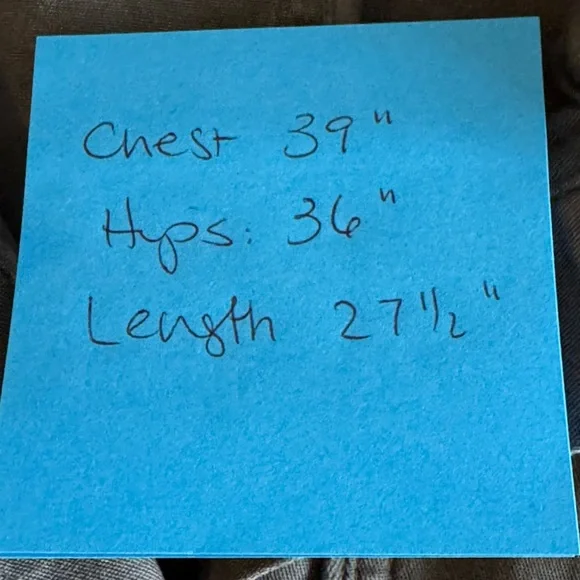 Chest 39"
Hips: 36"
Length 27 1/2"